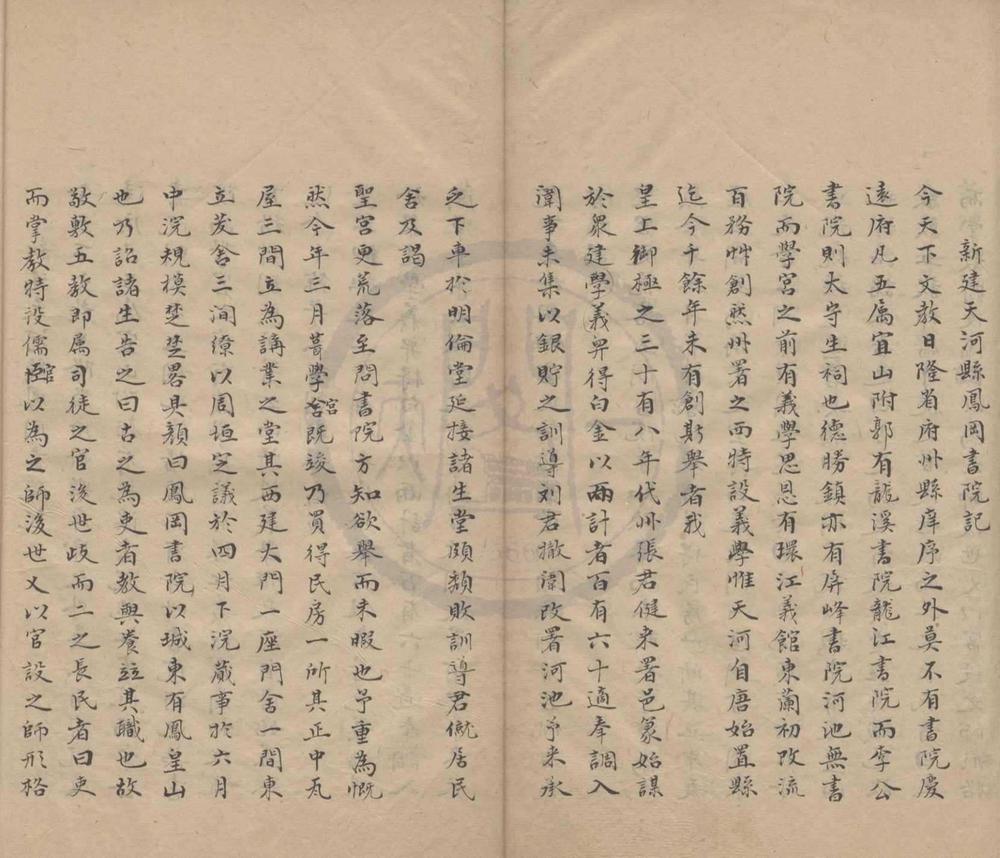 新建天河縣鳳岡書院記
今天下文教日隆省府州縣庠序之外莫不有書院慶
遠府凡五屬宜山附郭有龍溪書院龍江書院而李公
書院則太守生祠也德勝鎮亦有屏峰書院河池無書
院而學宮之前有義學思恩有環江義館東蘭初改流
百務艸創然州署之西特設義學惟天河自唐始置縣
迄今千餘年未有創斯舉者我
皇上御極之三十有八年代州張君健來署邑篆始謀
於眾建學義舁得白金以兩計者百有六十適奉調入
闈事未集以銀貯之訓導刘君撤闈改署河池予来承
乏下車於明倫堂延接諸生堂頗頹敗訓導君僦居民
舍及謁
聖宮更荒落至問書院方知欲舉而未暇也予重為慨
然今年三月葺學宮舍既竣乃買得民房一所其正中瓦
屋三間立為講業之堂其西建大門一座門舍一間東
立茇舍三間繚以周垣定議於四月下浣蕆事於六月
中浣規模楚楚畧具顏曰鳳岡書院以城東有鳳皇山
也乃詔諸生告之曰古之為吏者教與養竝其職也故
敬敷五教即属司徒之官後世歧而二之長民者曰吏
而掌教特設儒官以為之師後世又以官設之師形格